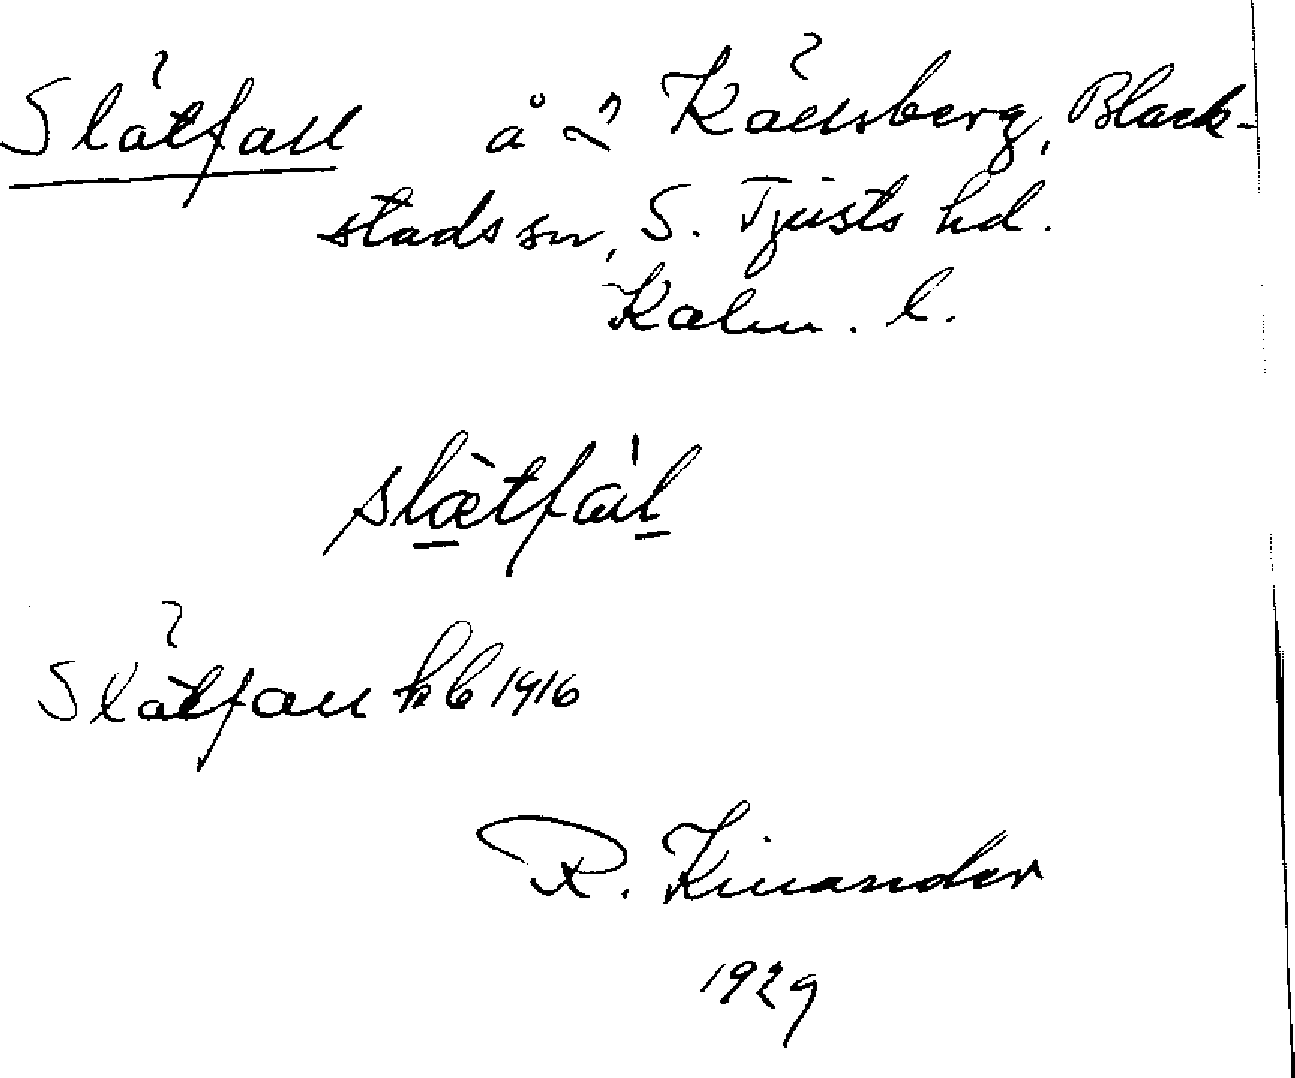 Slätfall å 2 Källsberg, Black-
stads sn, S. Tjusts hd.
Kalm. l.
slætfal
Slätfall kb 1916
R. Kinander
1929